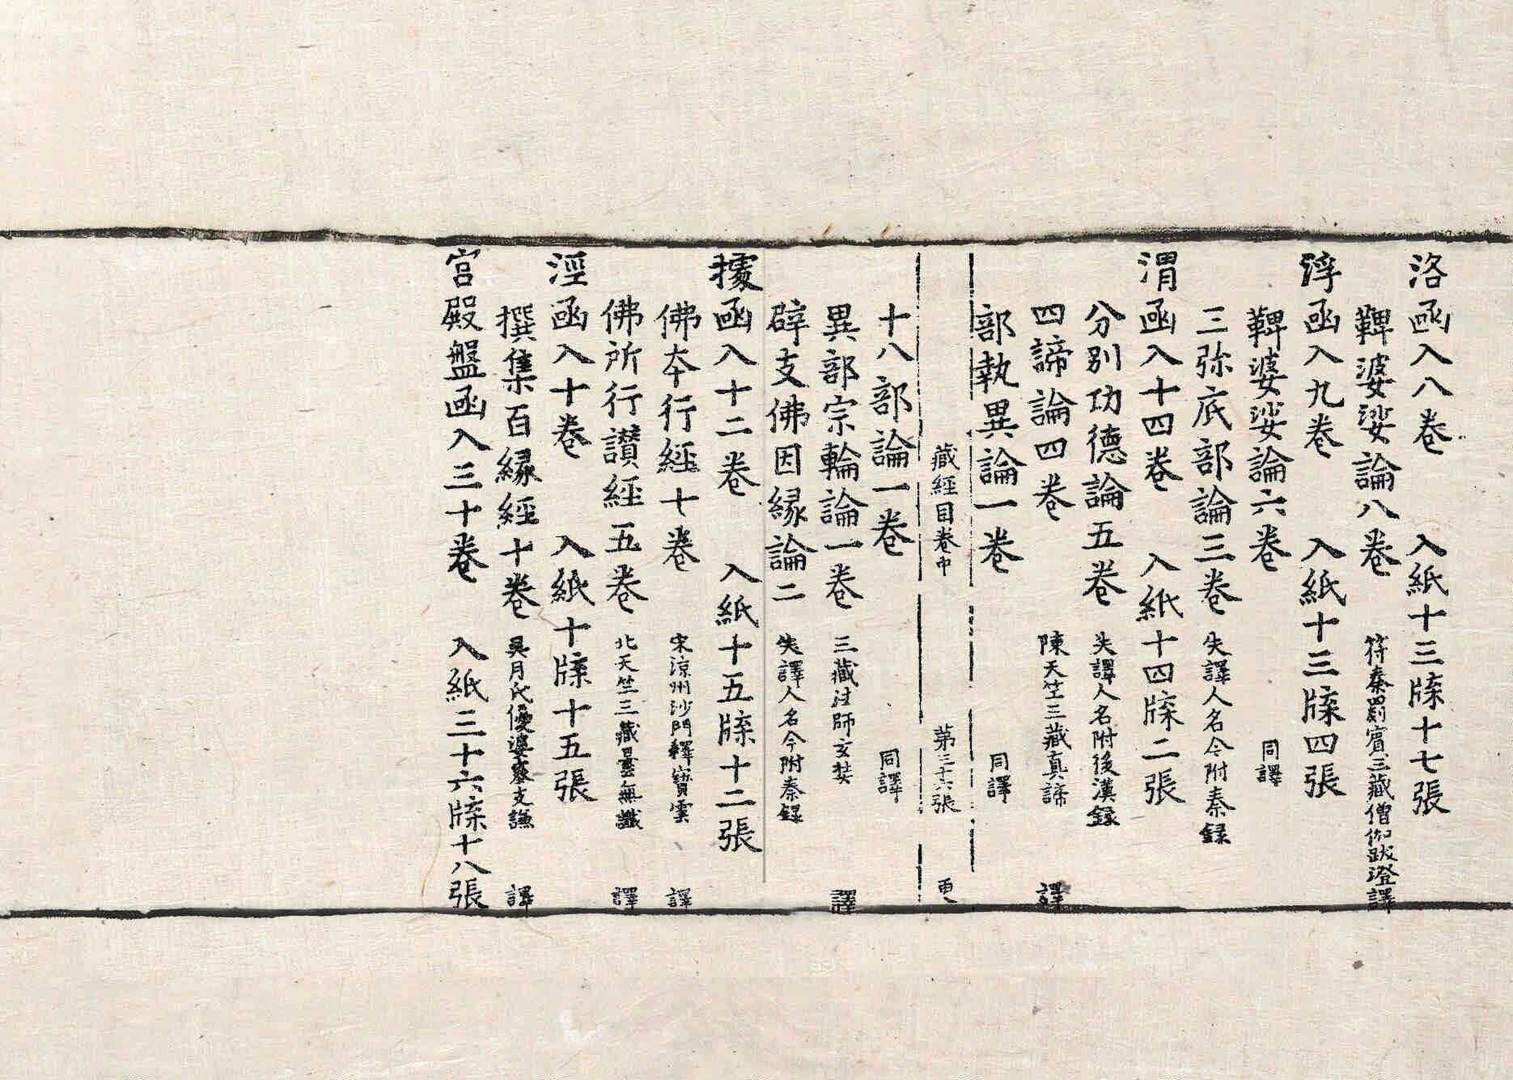 洛函入八卷 入紙十三牒十七張
鞞婆娑論八卷 符秦罽賓三藏僧伽跋澄譯
浮函入九卷 入紙十三牒四張
鞞婆娑論六卷 同譯
三弥底部論三卷 失譯人名今附秦録
渭函入十四卷 入紙十四牒二張
分別功德論五卷 失譯人名附後漢録
四諦論四卷 陳天竺三藏真諦 譯
部執異論一卷 同譯
藏經目卷中 第三十六張 更
十八部論一卷 同譯
異部宗輪論一卷 三藏法師玄奘 譯
辟支佛因縁論二 失譯人名今附秦録
據函入十二卷 入紙十五牒十二張
佛本行經七卷 宋涼州沙門釋寶雲 譯
佛所行讃經五卷 北天竺三藏曇無讖 譯
涇函入十卷 入紙十牒十五張
撰集百縁經十卷 吳月氏優婆塞支謙 譯
宮殿盤函入三十卷 入紙三十六牒十八張